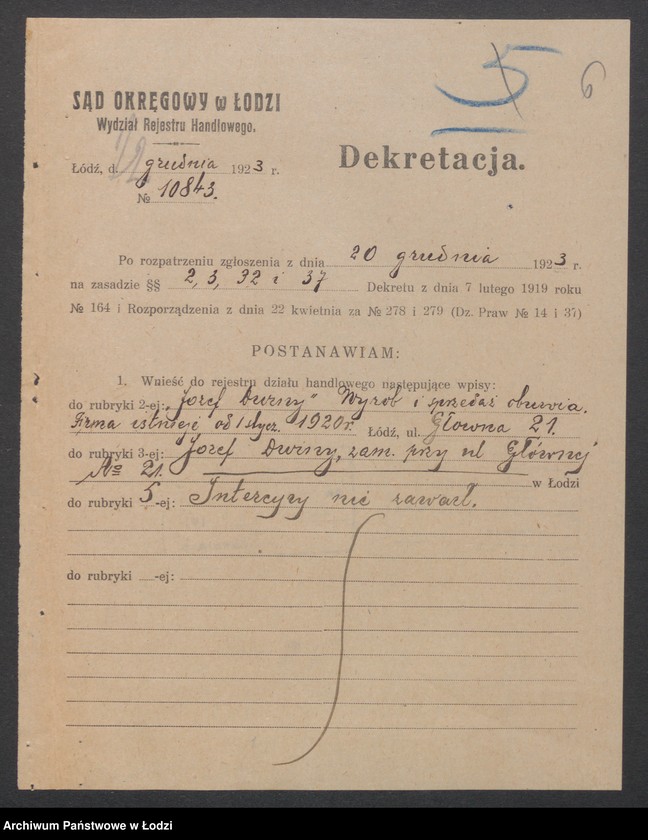 5 6
SĄD OKRĘGOWY w ŁODZI
Wydział Rejestru Handlowego.
Dekretacja.
Łódź, d. grudnia 1923 r.
№ 10843.
Po rozpatrzeniu zgłoszenia z dnia 20 grudnia 1923 r.
na zasadzie §§ 2, 3, 32 i 37 Dekretu z dnia 7 lutego 1919 roku
№ 164 i Rozporządzenia z dnia 22 kwietnia za № 278 i 279 (Dz. Praw № 14 i 37)
POSTANAWIAM:
1. Wnieść do rejestru działu handlowego następujące wpisy:
do rubryki 2-ej: „Józef Durny" Wyrób i sprzedaż obuwia.
Firma istnieje od 1 stycz. 1920 r. Łódź, ul. Głowna 21.
do rubryki 3-ej: Józef Durny, zam. przy ul Głównej
№ 21. w Łodzi
do rubryki 5-ej: Intercyzy nie zawarł.
do rubryki -ej:
Archiwum Państwowe w Łodzi